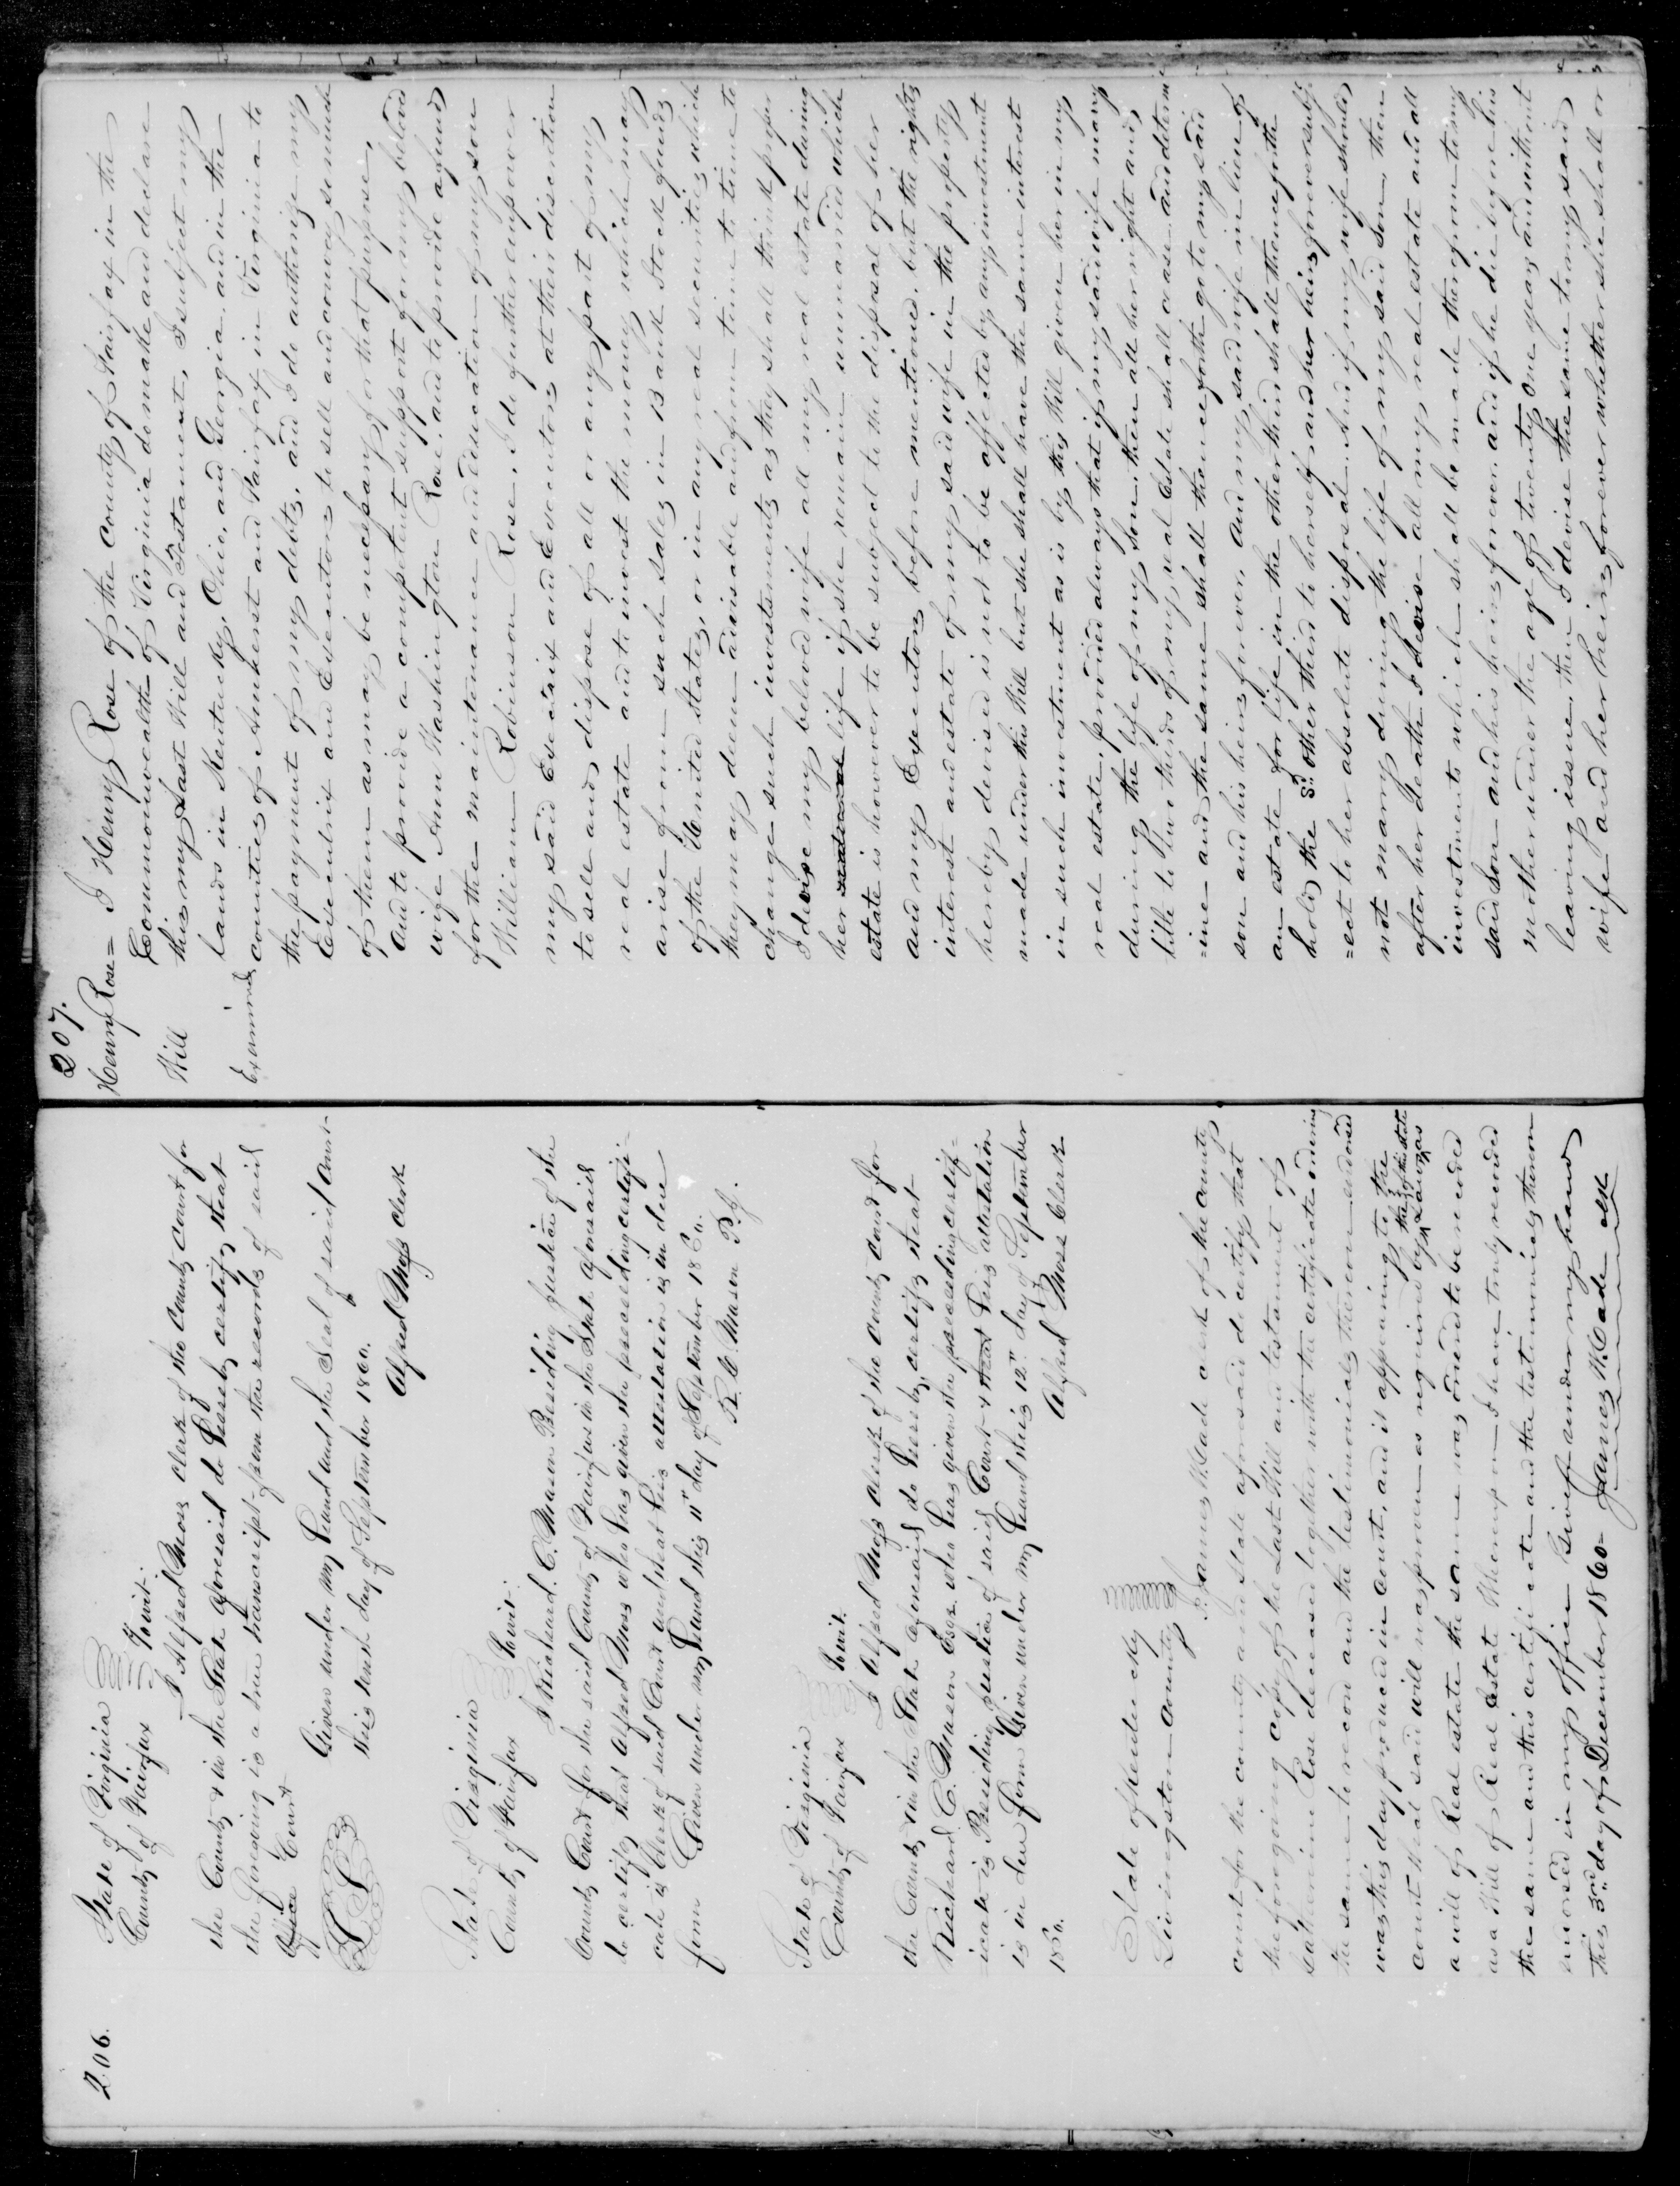 206.
State of Virginia
County of Fairfax Towit:
I Alfred Moss clerk of the County Court for
the County & in the State aforesaid do hereby certify that
the foregoing is a true transcript from the records of said
Office Court
Given under my hand and the Seal of said Court
this tenth day of September 1860.
Alfred Moss Clerk
State of Virginia
County of Fairfax Towit:
I Richard. C. Mason Presiding Justice of the
County Court for the said County of Fairfax in the State aforesaid
do certify that Alfred Moss who has given the preceeding certifi-
cate is Clerk of said Court and that his attestation is in due
form Given under my hand this 11" day of September 1860.
R. C. Mason P. J.
State of Virginia
County of Fairfax Towit:
I Alfred Moss clerk of the County Court for
the County & in the State aforesaid do hereby certify that
Richard C. Mason Esqr. who has given the preceeding certif-
icate is Presiding Justice of said Court & that his attestation
is in due form Given under my hand this 12" day of September
1860.
Alfred Moss Clerk
State of Kentucky
Livingston County
I James W. Cade clerk of the County
court for the county and State aforesaid do certify that
the foregoing copy of the Last Will and testament of
Catherine Rose deceased together with the certificate ordering
the same to record and the testimonials thereon endorsed
was this day produced in court, and it appearing to the
court that said will was proven as required by the Laws of this state as
a will of Real estate the same was ordered to be recorded
as a Will of Real Estate Whereupon I have truly recorded
the same and this certificate and the testimonials thereon
endorsed in my office Given under my hand
this 3rd. day of December 1860- James W. Cade clk
207.
Henry Rose= I Henry Rose of the county of Fairfax in the
Commonwealth of Virginia do make and declare
Will this my Last Will and Testament, I subject my
lands in Kentucky, Ohio, and Georgia and in the
Examined counties of Amherst and Fairfax in Virginia to
the payment of my debts, and I do authorize my
Executrix and Executors to sell and convey so much
of them as may be necessary for that purpose,
And to provide a competent support for my beloved
wife Ann Washington Rose. and to provide a fund
for the maintenance and education of my son
William Robinson Rose. I do further empower
my said Executrix and Executors at their discretion
to sell and dispose of all or any part of my
real estate and to invest the money which may
arise from such sales in Bank Stock funds
of the United States, or in any real securities which
they may deem advisable and from time to time to
change such investments as they shall think proper
I devise my beloved wife all my real estate during
her life if she remain unmarried which
estate is however to be subject to the disposal of her
and my Executors before mentioned. but the rights
interest and estate of my said wife in the property
hereby devised is not to be affected by any investment
made under this Will but she shall have the same interest
in such investment as is by this Will given her in my
real estate. provided always that if my said wife marry
during the life of my son. then all her right and
title to two thirds of my real Estate shall cease and determ
=ine and the same shall thenceforth go to my said
son and his heirs forever, And my said wife in lieu of
an estate for life in the other third shall thenceforth
hold the sd. other third to herself and her heirs forever subj
=ect to her absolute disposal. And if my wife should
not marry during the life of my said son, then
after her death I devise all my real estate and all
investments which shall be made therefrom to my
said son and his heirs forever. and if he die before his
mother under the age of twenty one years and without
leaving issue then I devise the same to my said
wife and her heirs forever whether she shall or